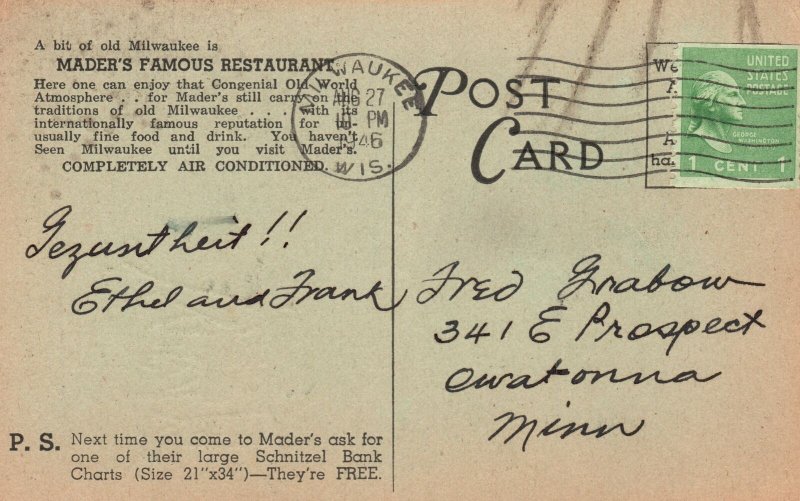 A bit of old Milwaukee is
MADER'S FAMOUS RESTAURANT
Here one can enjoy that Congenial Old World
Atmosphere . . for Mader's still carry on the
traditions of old Milwaukee . . . with its
internationally famous reputation for un-
usually fine food and drink. You haven't
Seen Milwaukee until you visit Mader's.
COMPLETELY AIR CONDITIONED.
MILWAUKEE
AUG 27
PM
1946
WIS.
POST
CARD
UNITED
STATES
POSTAGE
GEORGE
WASHINGTON
1 CENT 1
Gezuntheit!!
Ethel and Frank
Fred Grabow
341 E Prospect
Owatonna
Minn
P. S. Next time you come to Mader's ask for
one of their large Schnitzel Bank
Charts (Size 21"x34")—They're FREE.